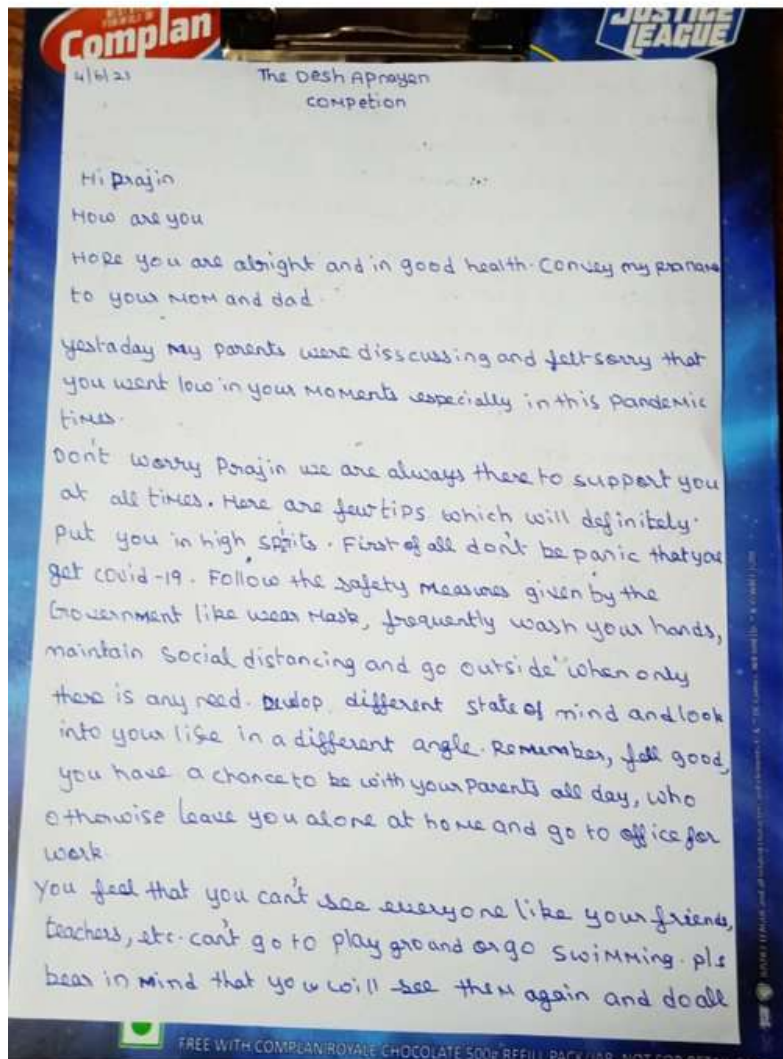 Complan
JUSTICE
LEAGUE
4/6/21
The Desh Apnayen
Competion
Hi Prajin
How are you
Hope you are alright and in good health. Convey my pranams
to your Mom and dad.
yestaday my parents were disscussing and felt sorry that
you went low in your Moments especially in this pandemic
times.
Don't worry Prajin we are always there to support you
at all times. Here are few tips which will definitely
put you in high spirits. First of all don't be panic that you
get covid-19. Follow the safety Measures given by the
Government like wear Mask, frequently wash your hands,
maintain Social distancing and go outside when only
there is any need. Devlop different state of mind and look
into your life in a different angle. Remember, fell good,
you have a chance to be with your Parents all day, who
otherwise leave you alone at home and go to office for
work.
You feel that you can't see everyone like your friends,
teachers, etc. can't go to play ground or go swimming. pls
bear in mind that you will see them again and do all
FREE WITH COMPLAN ROYALE CHOCOLATE 500g REFILL PACK